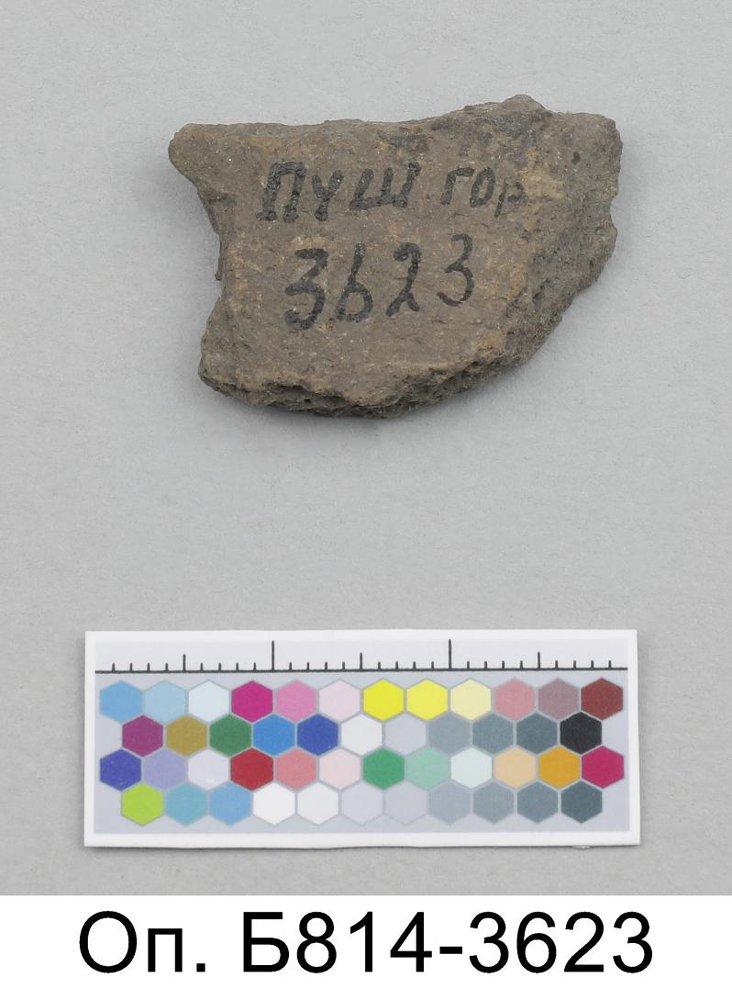 ПУШ гор
3623
Оп. Б814-3623